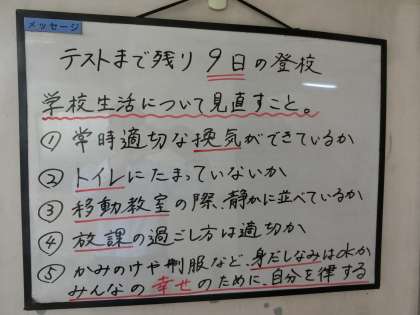 メッセージ
テストまで残り 9日の登校
学校生活について見直すこと。
① 常時適切な換気ができているか
② トイレにたまっていないか
③ 移動教室の際、静かに並べているか
④ 放課の過ごし方は適切か
⑤ かみのけや制服など、身だしなみはOKか
みんなの幸せのために、自分を律する